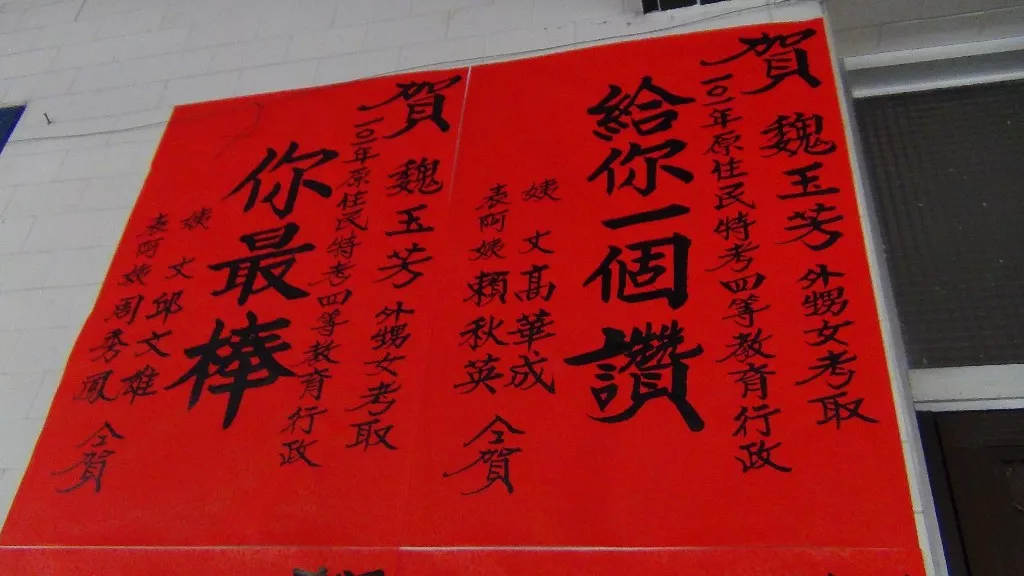 賀 魏玉芳 外甥女考取
一〇一年原住民特考四等教育行政
給你一個讚
姨丈 高華成
表阿姨 賴秋英 仝賀
賀 魏玉芳 外甥女考取
一〇一年原住民特考四等教育行政
你最棒
姨丈 邱文雄
表阿姨 周秀鳳 仝賀